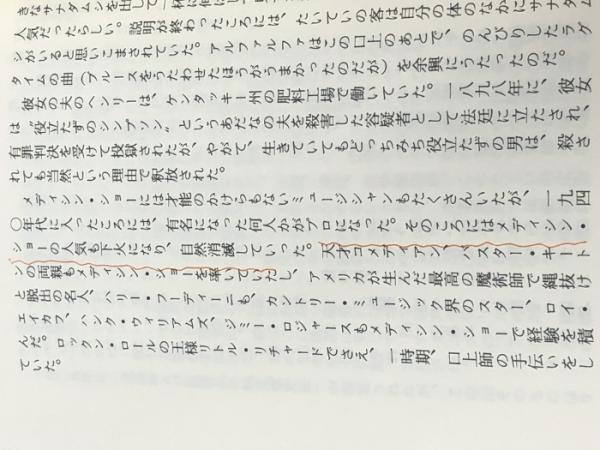 きなサナダムシを出して一杯に
人気だったらしい。説明が終わったころには、たいていの客は自分の体のなかにサナダム
シがいると思いこまされていた。アルファルファはこの口上のあとで、のんびりしたラグ
タイムの曲（ブルースをうたわせたほうがうまかったのだが）を余興にうたったのだ。
彼女の夫のヘンリーは、ケンタッキー州の肥料工場で働いていた。一八九八年に、彼女
は〝役立たずのシンプソン〟というあだなの夫を殺害した容疑者として法廷に立たされ、
有罪判決を受けて投獄されたが、やがて、生きていてもどっちみち役立たずの男は、殺さ
れても当然という理由で釈放された。
メディシン・ショーには才能のかけらもないミュージシャンもたくさんいたが、一九四
〇年代に入ったころには、有名になった何人かがプロになった。そのころにはメディシン・
ショーの人気も下火になり、自然消滅していった。天才コメディアン、バスター・キート
ンの両親もメディシン・ショーを率いていたし、アメリカが生んだ最高の魔術師で縄抜け
と脱出の名人、ハリー・フーディーニも、カントリー・ミュージック界のスター、ロイ・
エイカフ、ハンク・ウィリアムズ、ジミー・ロジャースもメディシン・ショーで経験を積
んだ。ロックン・ロールの王様リトル・リチャードでさえ、一時期、口上師の手伝いをし
ていた。